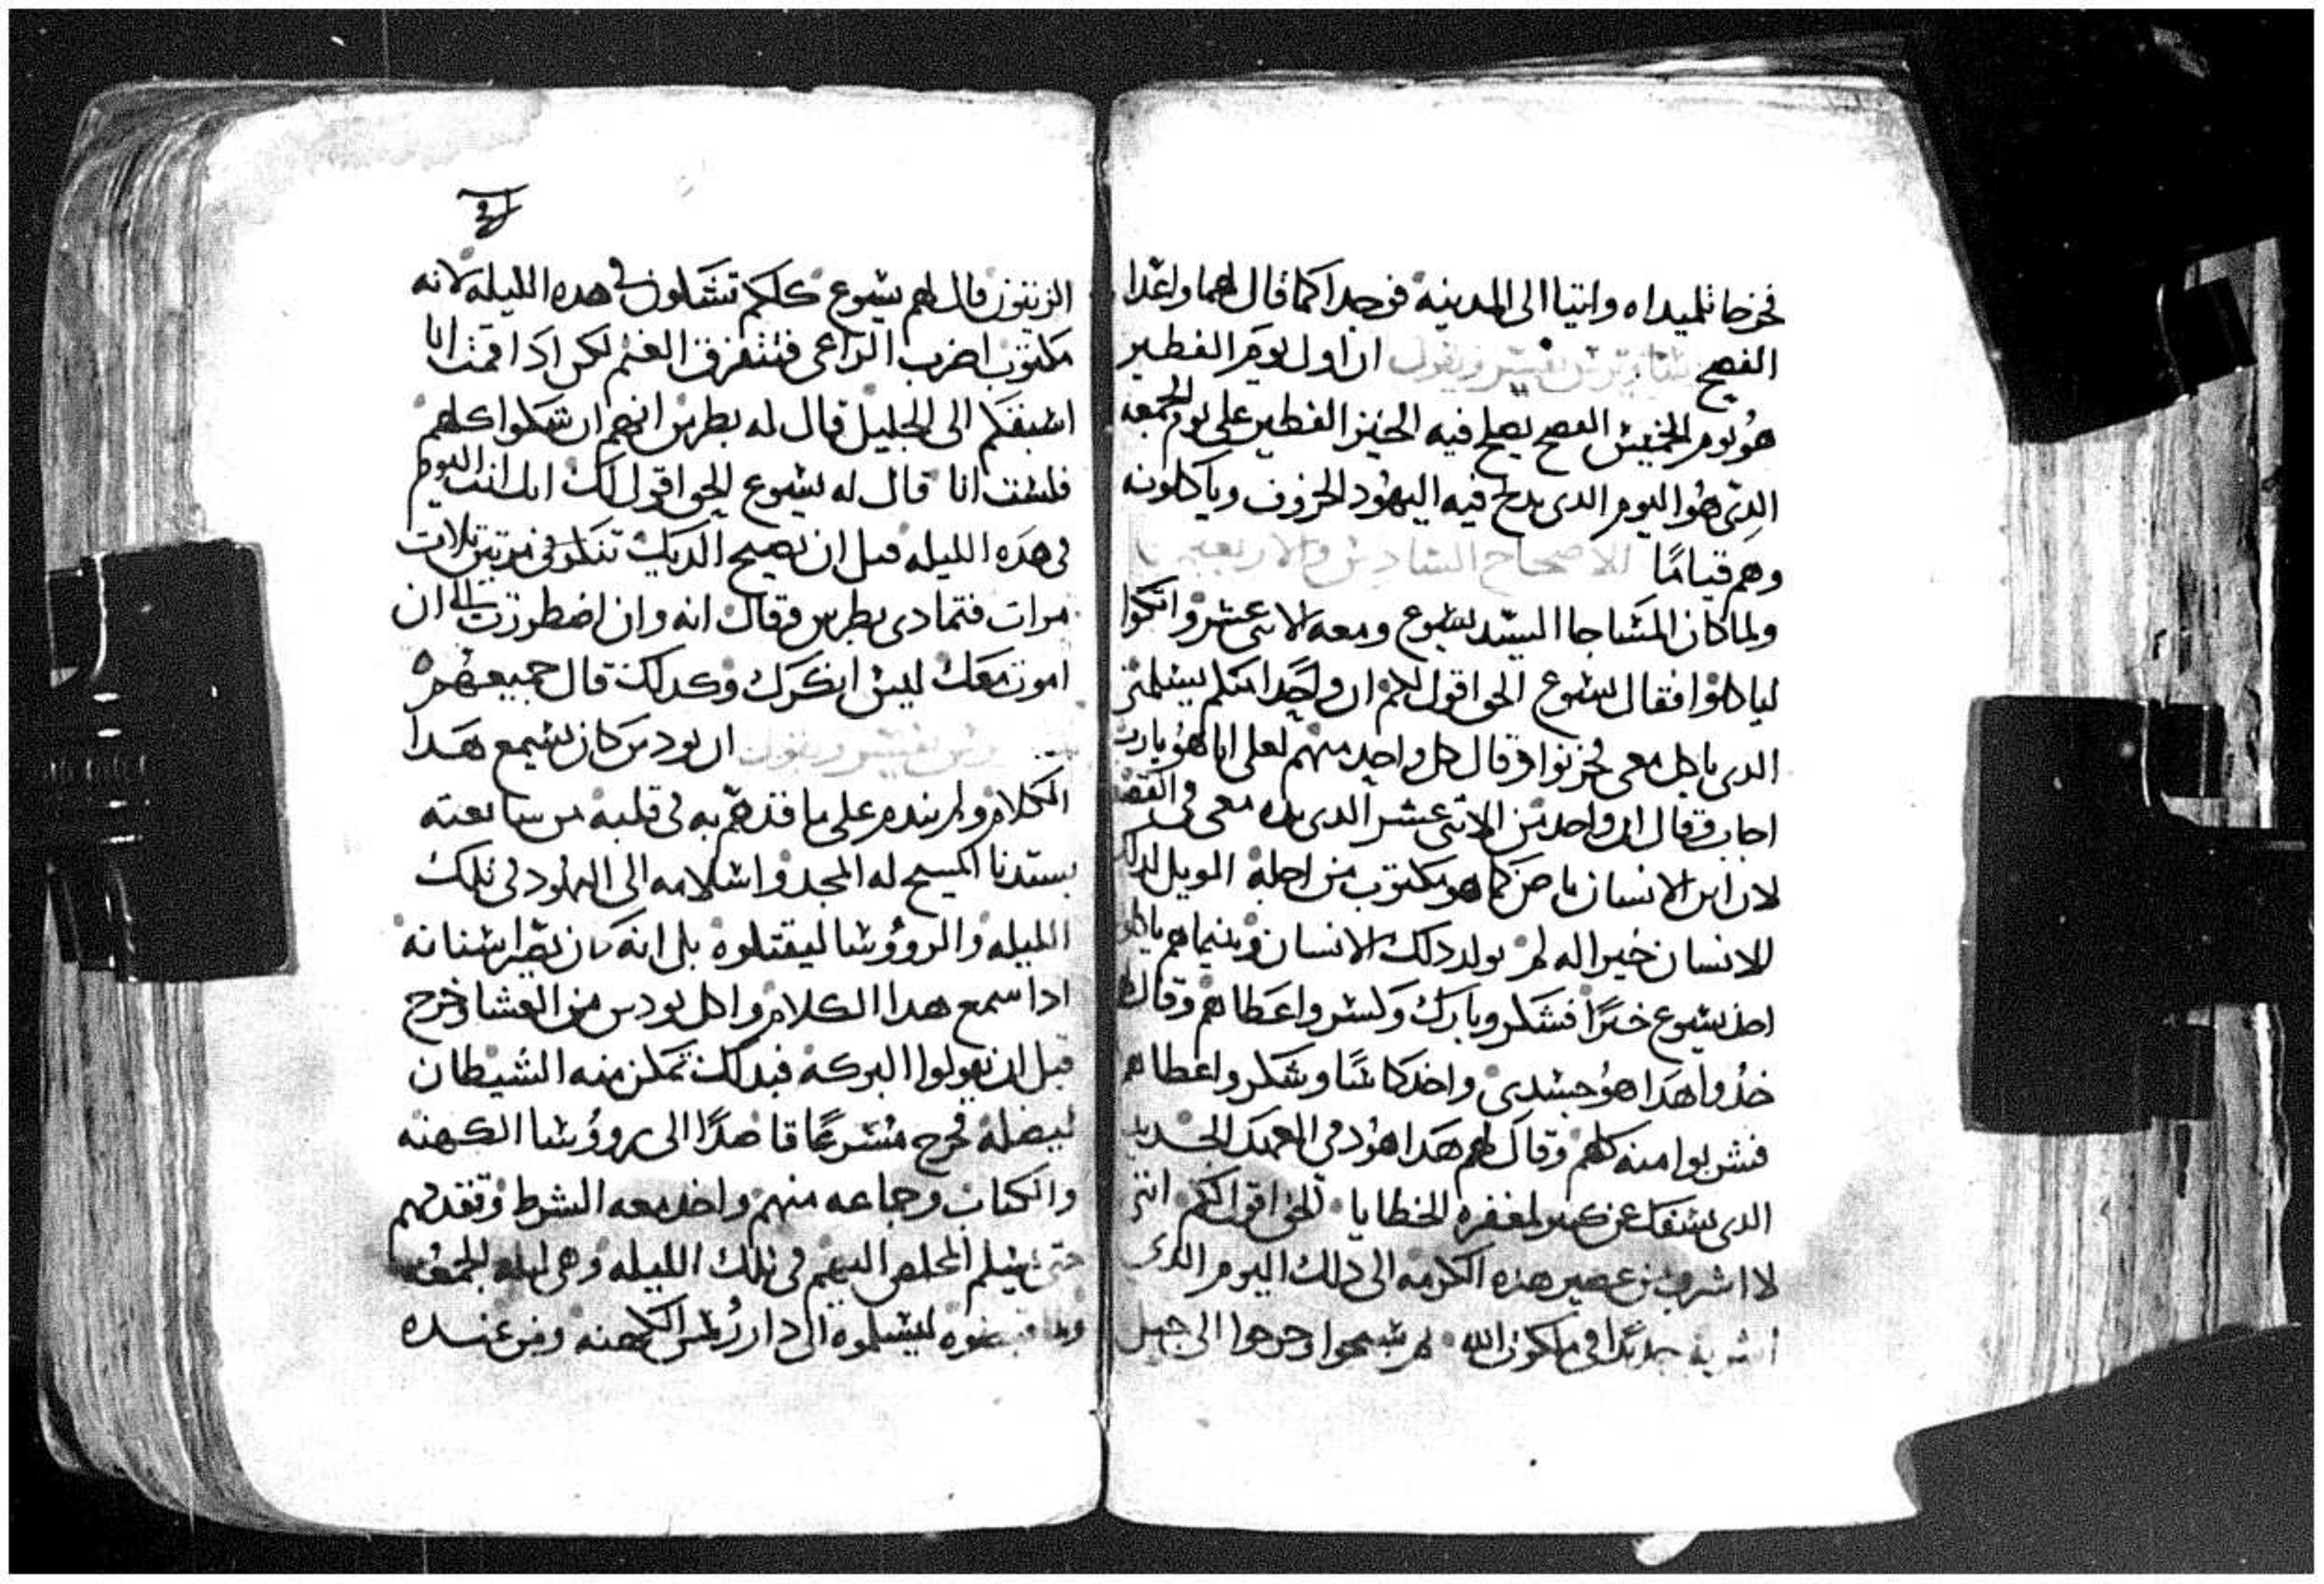 فخرجا تلميداه واتيا الى المدينه فوجدا كما قال لهما واعدا
الفصح تفسير ويقول ان اول يوم الفطير
هو يوم الخميس الفصح يصلح فيه الخبز الفطير على يوم الجمعه
الدى هو اليوم الدى يدبح فيه اليهود الخروف وياكلونه
وهم قيامًا الاصحاح السادس والاربعين
ولما كان المسا جا السيد يسوع ومعه الاتنى عشر واتكوا
لياكلوا فقال يسوع الحق اقول لكم ان واحدا منكم يسلمنى
الدى ياكل معى فحزنوا وقال كل واحد منهم لعلى انا هو يارب
اجاب وقال ان واحد من الاتنى عشر الدى يده معى فى القصعه
لان ابن الانسان ماض كما هو مكتوب من اجله الويل لدلك
الانسان خيرا له لم يولد دلك الانسان وبينما هم ياكلوا
اخد يسوع خبزًا فشكر وبارك وكسر واعطاهم وقال
خدوا هدا هو جسدى واخد كاسًا وشكر واعطاهم
فشربوا منه كلهم وقال لهم هدا هو دمى العهد الجديد
الدى يسفك عن كتير لمغفره الخطايا الحق اقول لكم انى
لا اشرب من عصير هذه الكرمه الى دلك اليوم الدى
اشربه جديدًا فى ملكوت الله تم سبحوا وخرجوا الى جبل
الزيتون قال لهم يسوع كلكم تشكون فى هده الليله لانه
مكتوب اضرب الراعى فتتفرق الغنم لكن ادا قمت انا
اسبقكم الى الجليل قال له بطرس انهم ان شكوا كلهم
فلست انا قال له يسوع الحق اقول لك انك انت اليوم
فى هده الليله قبل ان يصيح الديك تنكرنى مرتين تلات
مرات فتمادى بطرس وقال انه وان اضطررت الى ان
اموت معك ليس انكرك وكدلك قال جميعهم
تفسير ويقول ان يودس كان يسمع هدا
الكلام ولم يندم على ما قد هم به فى قلبه من سايعته
بسيدنا المسيح له المجد واسلامه الى اليهود فى تلك
الليله والروؤسا ليقتلوه بل انه كان
ادا سمع هدا الكلام واكل يودس من العشا وخرج
قبل ان يقولوا البركه فبدلك تمكن منه الشيطان
ليضله فخرج مسرعًا قاصدًا الى روؤسا الكهنه
والكتاب وجماعه منهم واخد معه الشرط وتقدمهم
حتى يسلم المخلص اليهم فى تلك الليله وهى ليله الجمعه
ليسلموه الى دار رئيس الكهنه ومن عنده